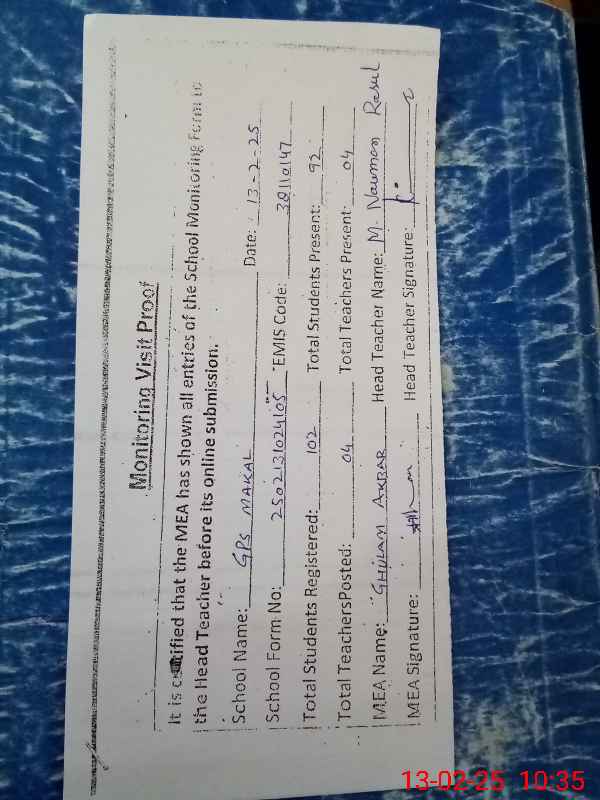 Monitoring Visit Proof
It is certified that the MEA has shown all entries of the School Monitoring Form to
the Head Teacher before its online submission.
School Name: GPS MAKAL Date: 13-2-25
School Form No: 2502131024105 EMIS Code: 38110147
Total Students Registered: 102 Total Students Present: 92
Total TeachersPosted: 04 Total Teachers Present: 04
MEA Name: GHULAM AKBAR Head Teacher Name: M Nauman Rasul
MEA Signature: Head Teacher Signature:
13-02-25 10:35